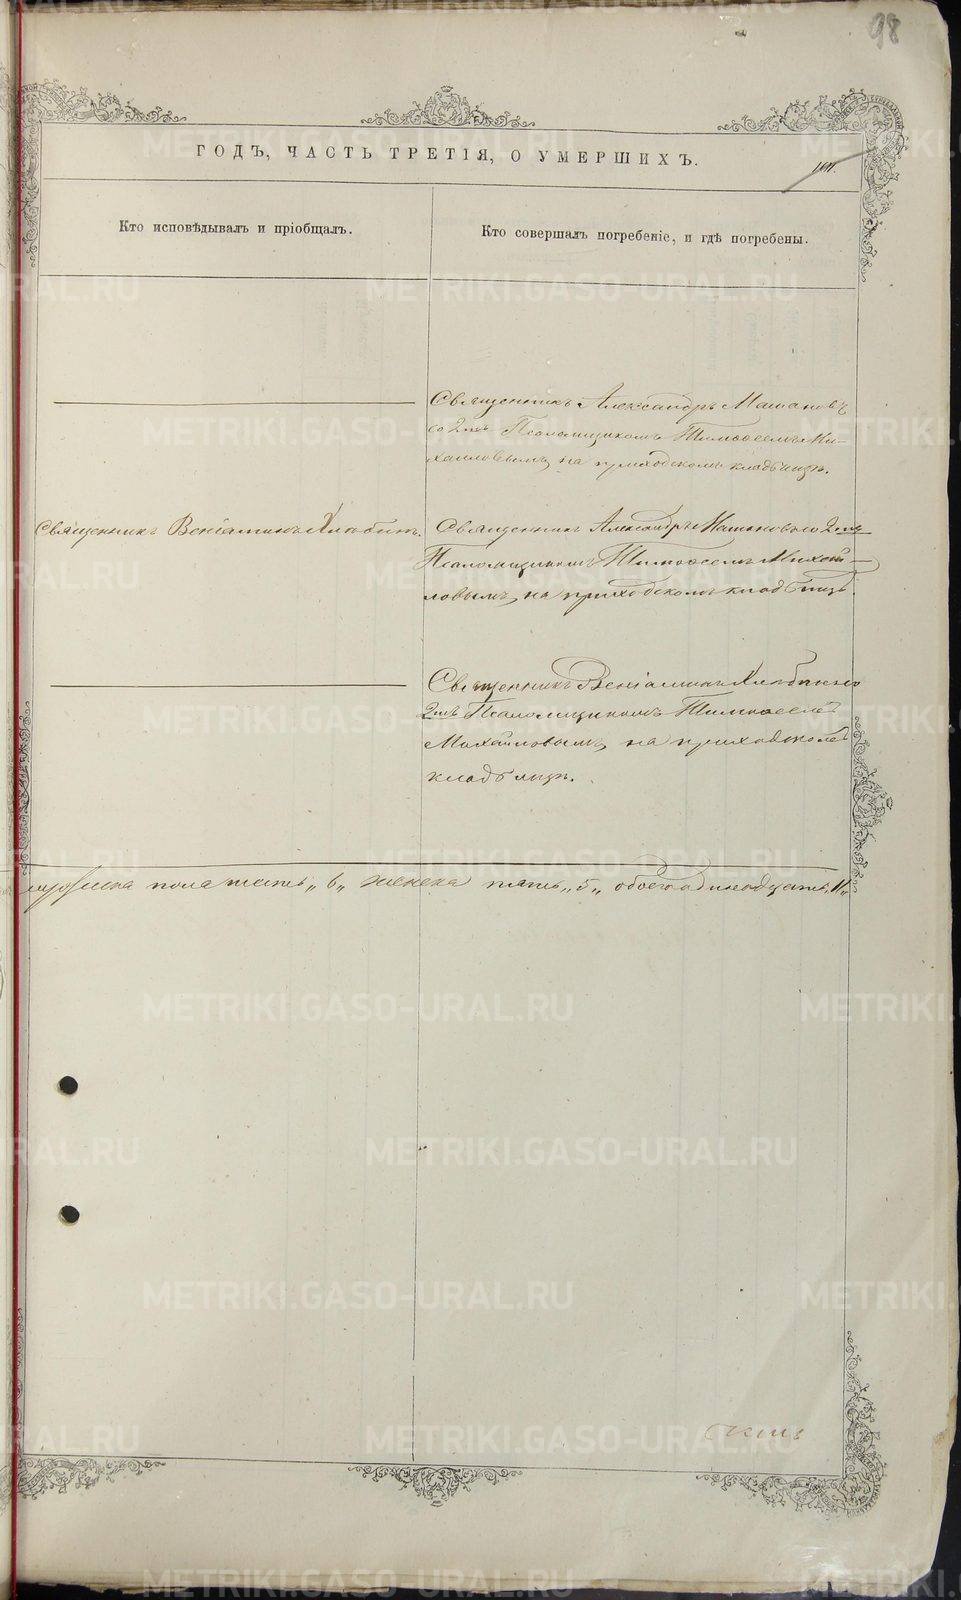 98
ГОДЪ, ЧАСТЬ ТРЕТІЯ, О УМЕРШИХЪ.
Кто исповѣдывалъ и пріобщалъ.
Кто совершалъ погребеніе, и гдѣ погребены.
Священникъ Александръ Машановъ
со 2мъ Псаломщикомъ Тимоѳеемъ Ми-
хаиловымъ, на приходскомъ кладбищѣ.
Священникъ Веніаминъ
Священникъ Александръ Машановъ со 2мъ
Псаломщикомъ Тимоѳеемъ Михай-
ловымъ, на приходскомъ кладбищѣ.
Священникъ Веніаминъ
2мъ Псаломщикомъ Тимоѳеемъ
Михайловымъ, на приходскомъ
кладбищѣ.
пола шесть „6„ женска пять „5„ обоего одинадцать „11„
METRIKI.GASO-URAL.RU